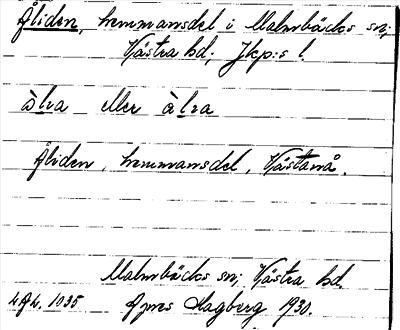 Åliden, hemmansdel i Malmbäcks sn;
Västra hd; Jkp:s l.
àlıa eller àlıa
Åliden, hemmansdel, Västanå.
Malmbäcks sn; Västra hd.
1035 Agnes Hagberg 1930.